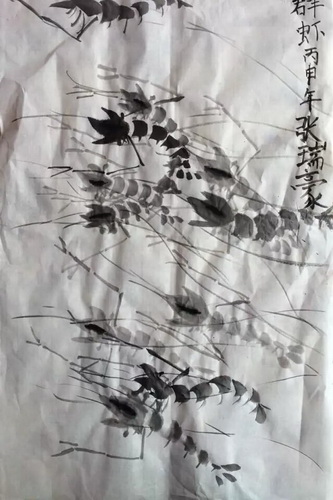 群虾丙申年张瑞豪